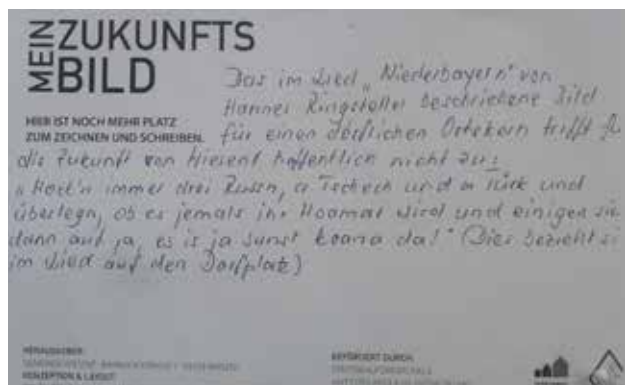 MEIN ZUKUNFTS
BILD
HIER IST NOCH MEHR PLATZ
ZUM ZEICHNEN UND SCHREIBEN.
Das im Lied „Niederbayern" von
Hannes Ringlstetter beschriebene Bild
für einen dörflichen Ortskern trifft für
die Zukunft von Wiesent hoffentlich nicht zu:
„Hock'n immer drei Russen, a Tschech und a Türk und
überlegn, ob es jemals ihr Hoamat wird und einigen sie
dann auf ja, es is ja sunst koana da!" (Dies bezieht si
im Lied auf den Dorfplatz)
HERAUSGEBER:
KONZEPTION & LAYOUT
GEFÖRDERT DURCH: